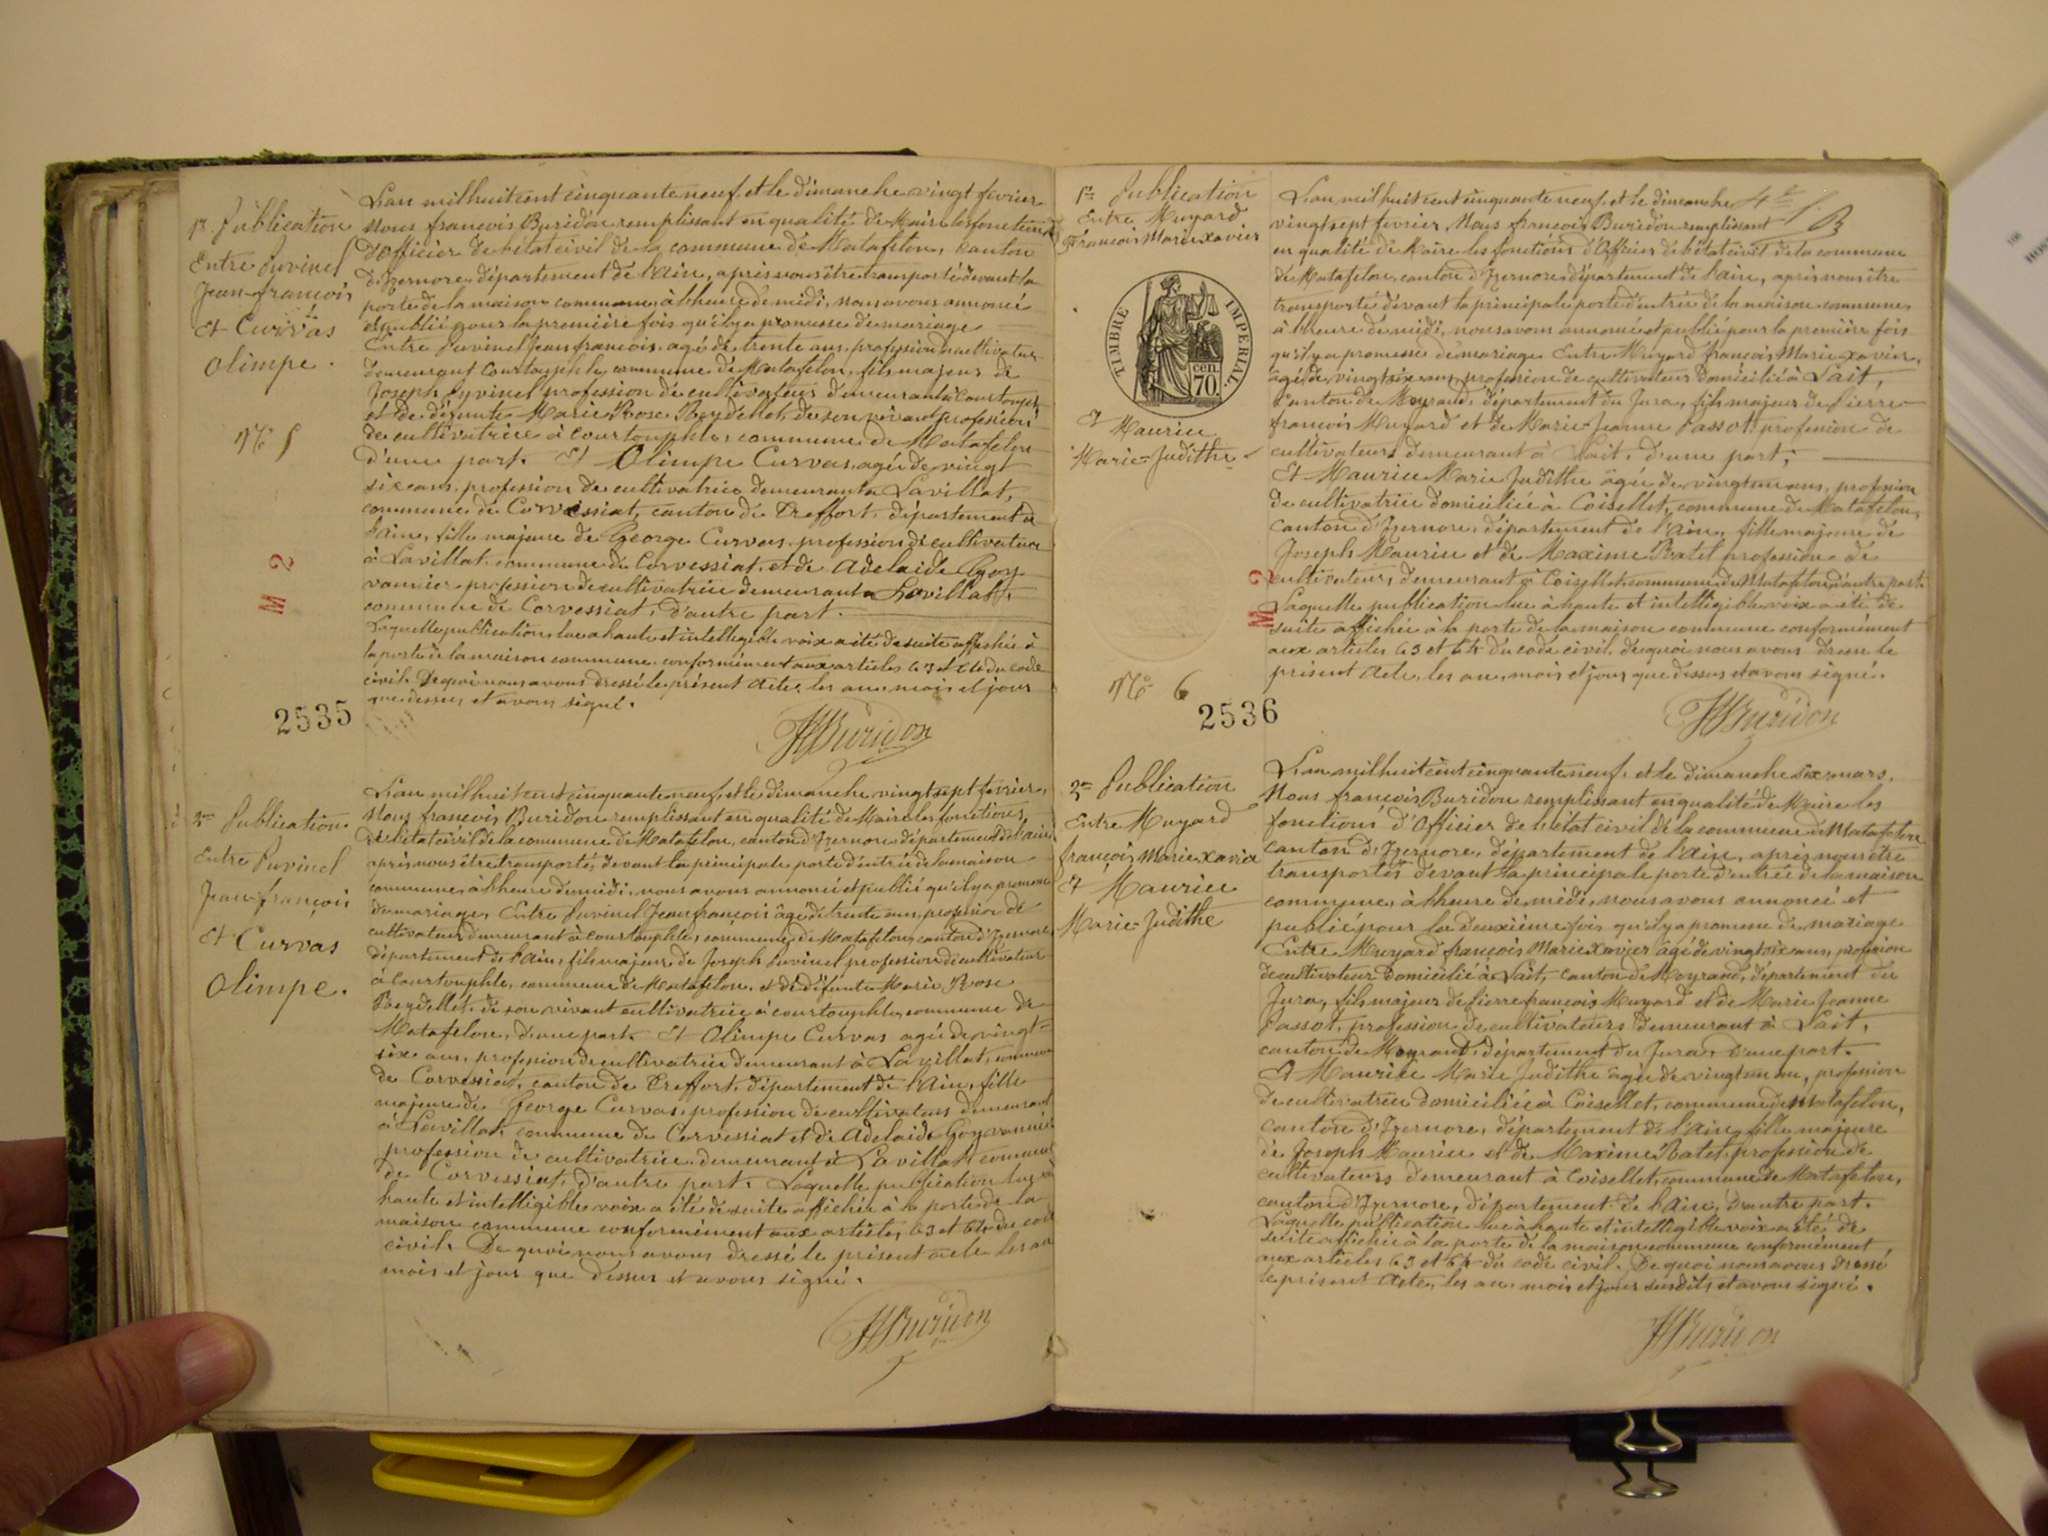 1re Publication
Entre Juvinel
Jean-françois
Et Curvas
Olimpe.
N° 5
M 2
2535
L'an mil huit cent cinquante neuf, et le dimanche vingt fevrier
Nous françois Buridon remplissant en qualité de Maire les fonctions
d'Officier de l'état civil de la commune de Matafelon, canton
d'Izernore, département de l'Ain, après nous être transporté devant la
porte de la maison commune, à l'heure de midi, nous avons annoncé
et publié pour la première fois qu'il y a promesse de mariage
Entre Juvinel Jean françois, agé de trente ans, profession de cultivateur
demeurant Courtouphle, commune de Matafelon, fils majeur de
Joseph Juvinel profession de cultivateur demeurant à Courtouphle
et de défunte Marie Rose Reydellet, de son vivant profession
de cultivatrice à Courtouphle, commune de Matafelon
d'une part. Et Olimpe Curvas, agée de vingt
six ans, profession de cultivatrice demeurant à Lavillat,
commune de Corvessiat, canton de Treffort, département de
l'Ain, fille majeure de George Curvas, profession de cultivateur
à Lavillat commune de Corvessiat, et de Adelaide Goy
vannier profession de cultivatrice demeurant à Lavillat,
commune de Corvessiat, d'autre part.
Laquelle publication, lue à haute et intelligible voix a été de suite affichée à
la porte de la maison commune conformément aux articles 63 et 64 du code
civil. De quoi nous avons dressé le présent acte, les an, mois et jour
que dessus, et avons signé.
F Buridon
2me Publication
Entre Juvinel
Jean-françois
Et Curvas
Olimpe.
L'an mil huit cent cinquante neuf, et le dimanche vingt sept fevrier,
Nous françois Buridon remplissant en qualité de Maire les fonctions
de l'état civil de la commune de Matafelon, canton d'Izernore, département de l'Ain
après nous être transporté, devant la principale porte d'entrée de la maison
commune, à l'heure de midi, nous avons annoncé et publié qu'il y a promesse
de mariage, Entre Juvinel Jean françois âgé de trente ans, profession de
cultivateur demeurant à Courtouphle, commune de Matafelon, canton d'Izernore
département de l'Ain, fils majeur de Joseph Juvinel profession de cultivateur
à Courtouphle, commune de Matafelon, et de défunte Marie Rose
Reydellet, de son vivant cultivatrice à Courtouphle, commune de
Matafelon, d'une part. Et Olimpe Curvas agée de vingt-
six ans, profession de cultivatrice demeurant à Lavillat, commune
de Corvessiat, canton de Treffort, département de l'Ain, fille
majeure de George Curvas, profession de cultivateur demeurant
à Lavillat, commune de Corvessiat et de Adelaide Goy vannier
profession de cultivatrice demeurant à Lavillat commune
de Corvessiat, d'autre part. Laquelle publication lue à
haute et intelligible voix a été de suite affichée à la porte de la
maison commune conformément aux articles 63 et 64 du code
civil. De quoi nous avons dressé le présent acte les an
mois et jour que dessus et avons signé.
F Buridon
1re Publication
Entre Muyard
François Marie Xavier
TIMBRE IMPERIAL.
cen. 70
Et
Maurice
Marie-Judithe
N° 6
2536
M 2
L'an mil huit cent cinquante neuf, et le dimanche
vingt sept fevrier Nous françois Buridon remplissant
en qualité de Maire les fonctions d'Officier de l'état civil de la commune
de Matafelon canton d'Izernore, département de l'Ain, après nous être
transporté devant la principale porte d'entrée de la maison commune,
à l'heure de midi, nous avons annoncé et publié pour la première fois
qu'il y a promesse de mariage Entre Muyard françois Marie xavier,
âgé de vingt six ans, profession de cultivateur domicilié à Lait,
canton de Moyrand, département du Jura, fils majeur de Pierre
françois Muyard et de Marie Jeanne Passot, profession de
cultivateurs demeurant à Lait, d'une part;
Et Maurice Marie Judithe âgée de vingt un ans, profession
de cultivatrice domiciliée à Coisellet, commune de Matafelon,
canton d'Izernore, département de l'Ain, fille majeure de
Joseph Maurice et de Maxime Ratel profession de
cultivateurs, demeurant à Coisellet commune de Matafelon d'autre part.
Laquelle publication lue à haute et intelligible voix a été de
suite affichée à la porte de la maison commune conformément
aux articles 63 et 64 du code civil, de quoi nous avons dressé le
présent Acte, les an, mois et jour que dessus et avons signé.
F Buridon
2me Publication
Entre Muyard
françois Marie Xavier
Et Maurice
Marie-Judithe
L'an mil huit cent cinquante neuf, et le dimanche six mars.
Nous françois Buridon remplissant en qualité de Maire les
fonctions d'Officier de l'état civil de la commune de Matafelon
canton d'Izernore, département de l'Ain, après nous être
transporté devant la principale porte d'entrée de la maison
commune, à l'heure de midi, nous avons annoncé et
publié pour la deuxième fois qu'il y a promesse de mariage
Entre Muyard françois Marie xavier âgé de vingt six ans, profession
de cultivateur domicilié à Lait, canton de Moyrand, département du
Jura, fils majeur de Pierre françois Muyard et de Marie Jeanne
Passot, profession de cultivateurs demeurant à Lait,
canton de Moyrand, département du Jura, d'une part.
Et Maurice Marie Judithe âgée de vingt un an, profession
de cultivatrice domiciliée à Coisellet, commune de Matafelon,
canton d'Izernore, département de l'Ain, fille majeure
de Joseph Maurice et de Maxime Ratel profession de
cultivateurs demeurant à Coisellet, commune de Matafelon,
canton d'Izernore, département de l'Ain, d'autre part.
Laquelle publication lue à haute et intelligible voix a été de
suite affichée à la porte de la maison commune conformément
aux articles 63 et 64 du code civil. De quoi nous avons dressé
le présent Acte, les an, mois et jour susdits, et avons signé.
F Buridon